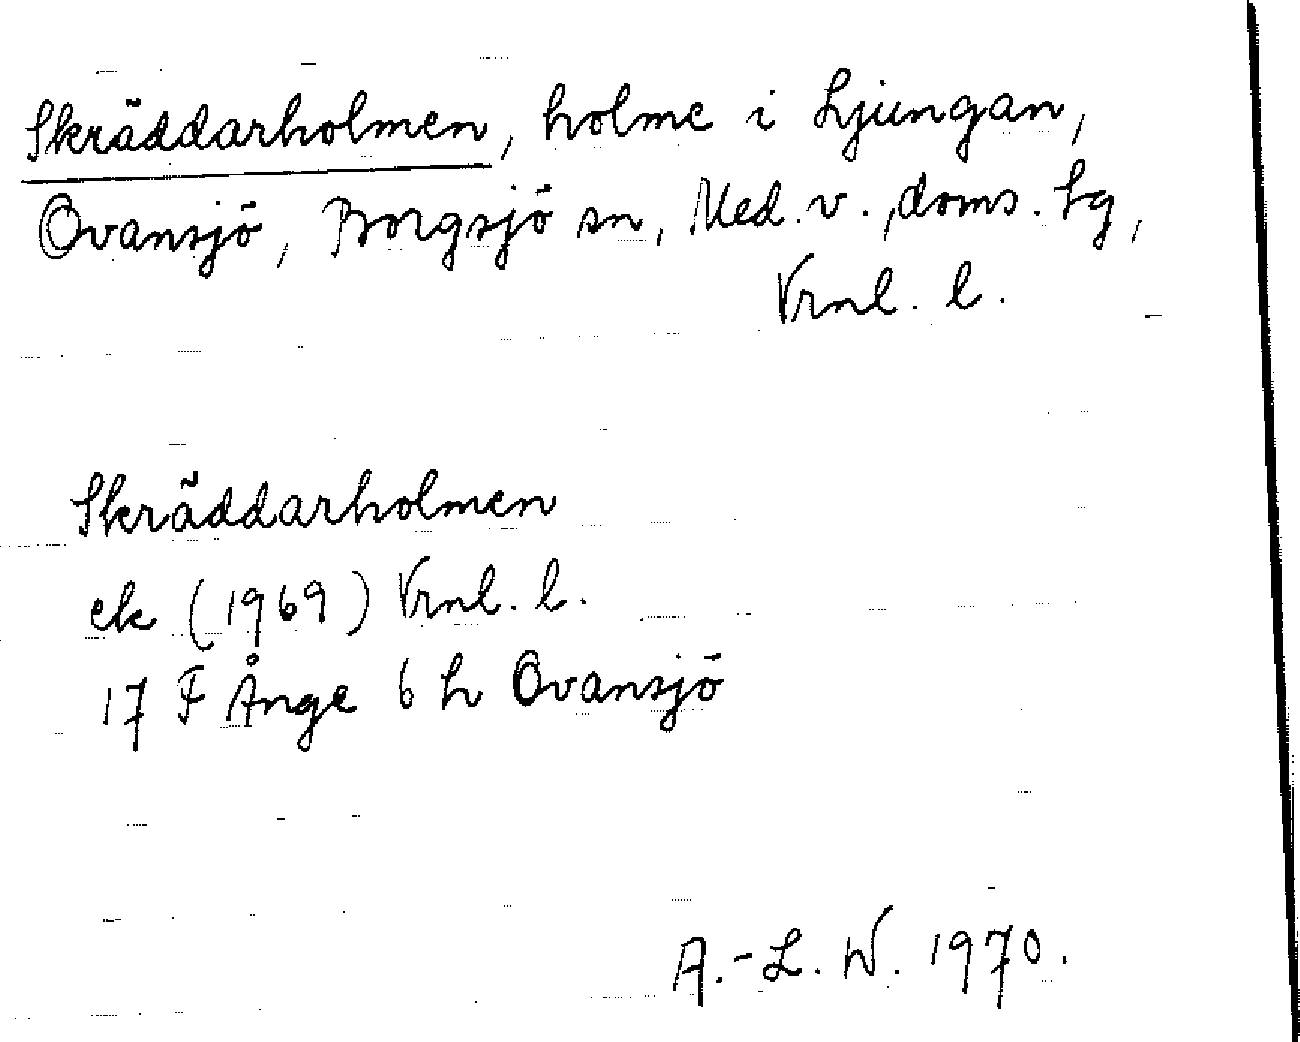 Skräddarholmen, holme i Ljungan,
Ovansjö, Borgsjö sn, Med. v., doms. hg,
Vrnl. l.
Skräddarholmen
ek (1969) Vrnl. l.
17 F Ånge 6 h Ovansjö
A.-L. W. 1970.